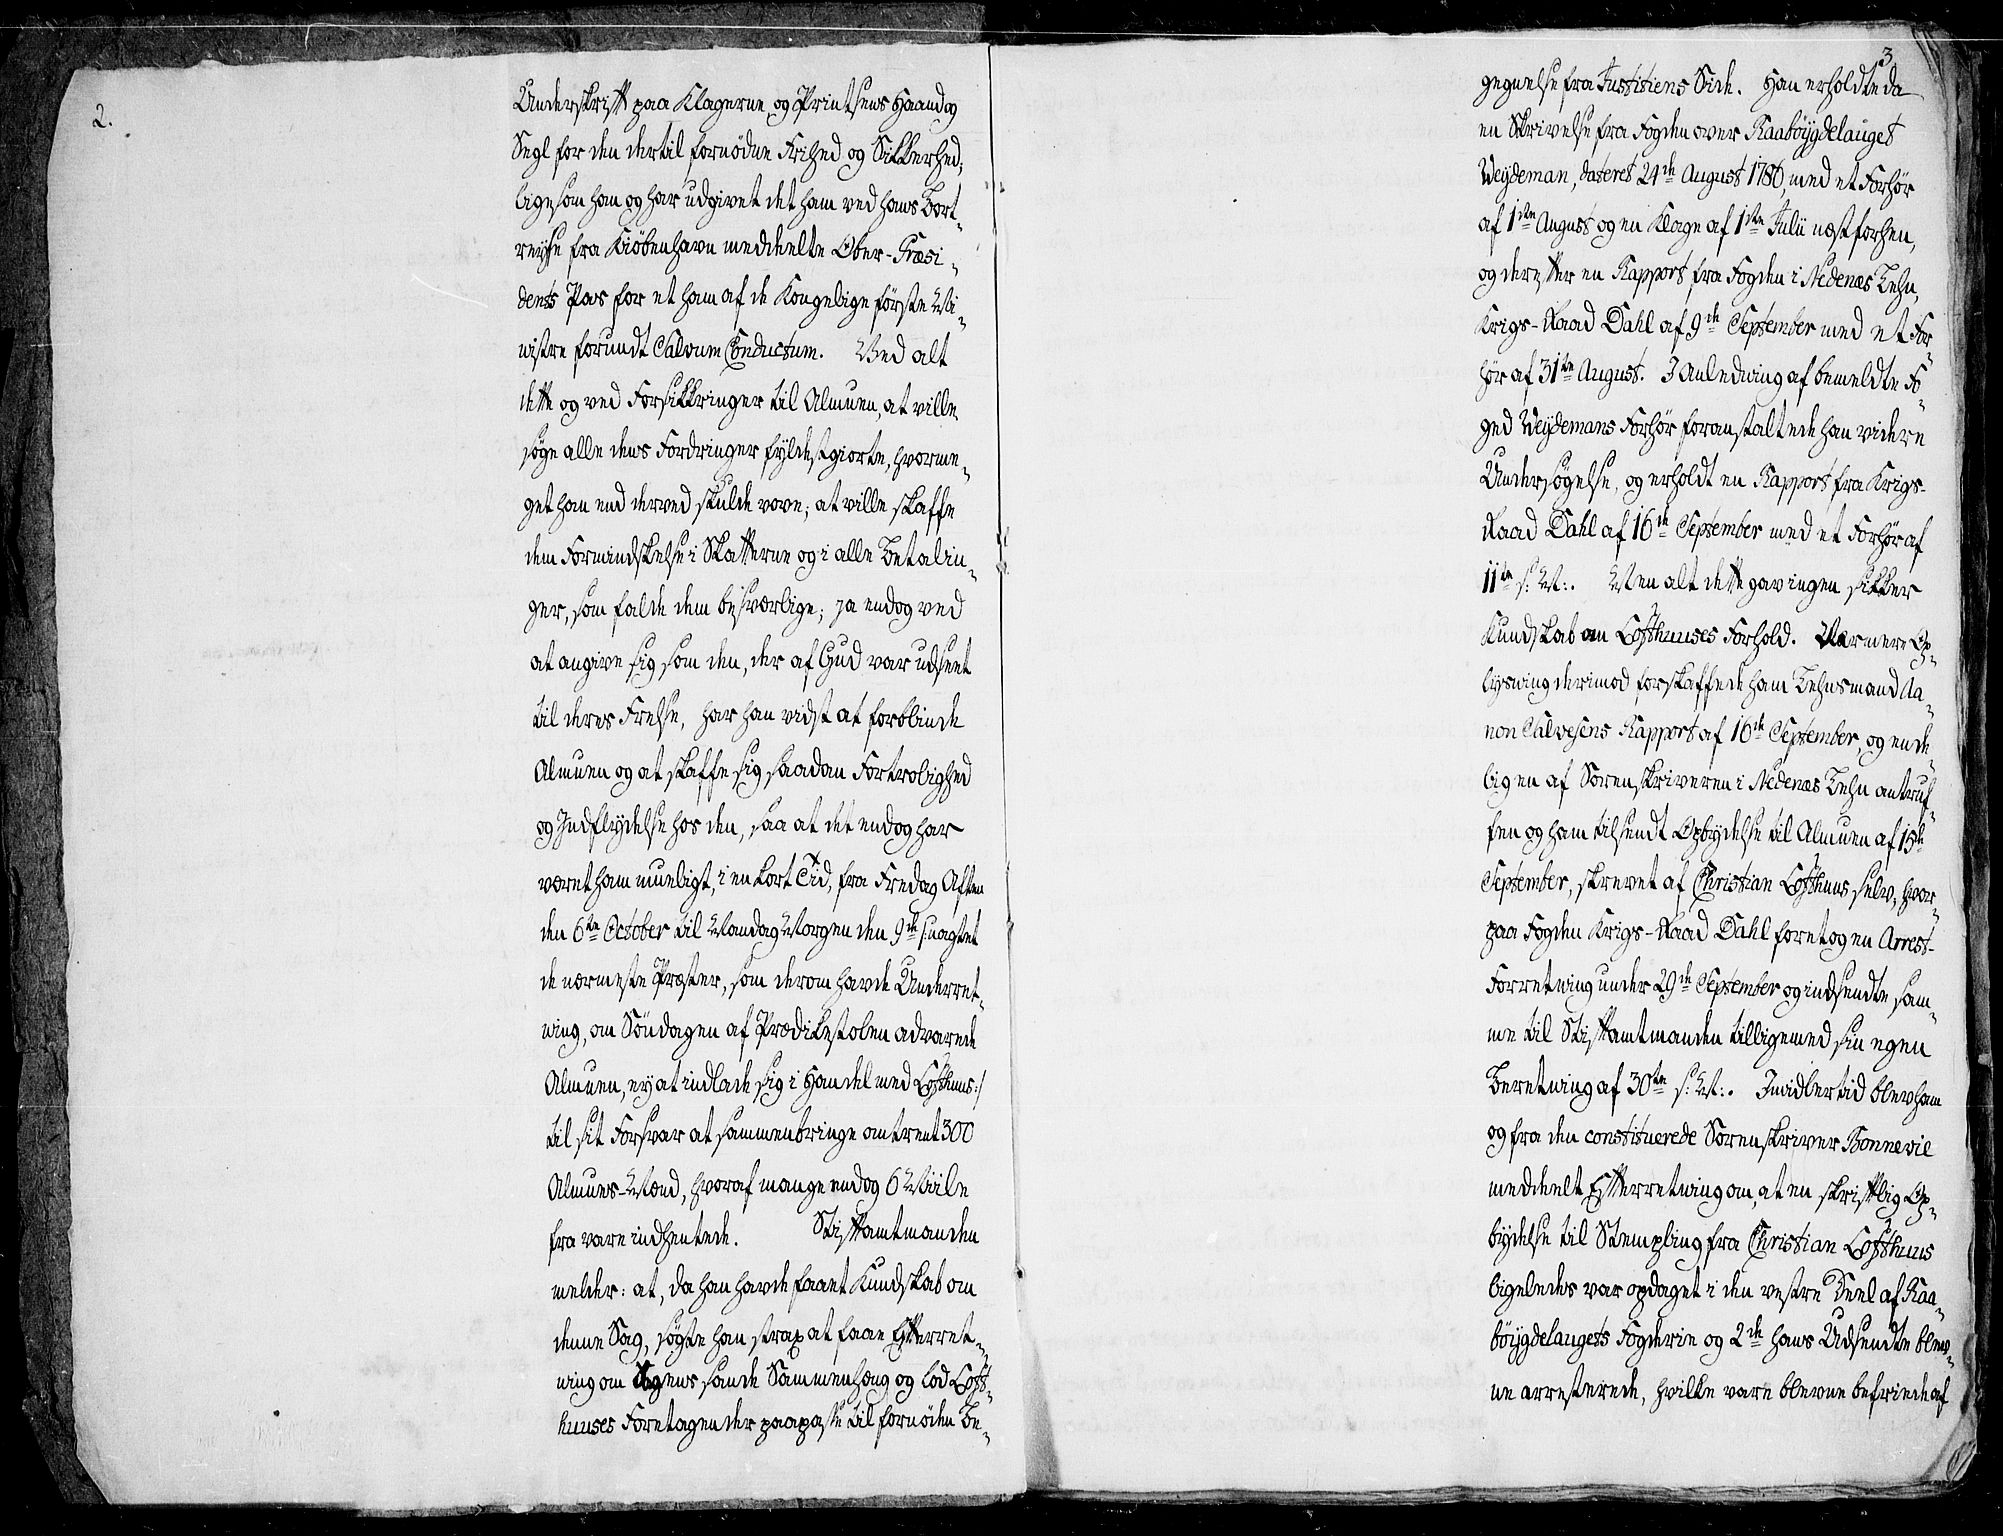 2.
Underskrift paa Klagerne, og Printsens Haand og
Segl for den dertil fornødne Frihed og Sikkerhed;
ligesom han og har udgivet det ham ved hans Bort-
reyse fra Kiöbenhavn meddeelte Ober-Præsi-
dents Pas for et ham af de Kongelige første Mi-
nistre forundt Salvum Conductum. Ved alt
dette og ved Forsikkringer til Almuen, at ville
søge alle dens Fordringer fyldestgiorte, hvorme-
get han end derved skulde vove; at ville skaffe
dem Formindskelse i Skatterne og i alle Betalin-
ger, som falde dem besværlige; ja endog ved
at angive sig som den, der af Gud var udseet
til deres Frelse, har han vidst at forblinde
Almuen og at skaffe sig saadan Fortrolighed
og Indflydelse hos den, saa at det endog har
været ham mueligt, i en kort Tid, fra Fredag Aften
den 6te October til Mandag Morgen den 9de /: uagtet
de nærmeste Præster, som derom havde Underret-
ning, om Söndagen af Prædikestolen advarede
Almuen, ey at indlade sig i Handel med Lofthuus:/
til sit Forsvar at sammenbringe omtrent 300
Almues-Mænd, hvoraf mange endog 6 Miile
fra vare indhentede. Stiftamtmanden
melder: at, da han havde faaet Kundskab om
denne Sag, søgte han strax at faae Efterret-
ning om Sagens sande Sammenhæng og lod Loft-
huuses Foretagender paapasse til fornöden Be-
3
gegnelse fra Justitiens Side. Han erholdte da
en Skrivelse fra Fogden over Raabøygdelauget
Weydeman, dateret 24de August 1786 med et Forhør
af 1ste August og en Klage af 1ste Julii næstforhen,
og derefter en Rapport fra Fogden i Nedenæs Lehn,
Krigs-Raad Dahl af 9de September med et For-
hør af 31te August. I Anledning af bemeldte Fo-
ged Weydemans Forhør foranstaltede han videre
Undersøgelse, og erholdt en Rapport fra Krigs-
Raad Dahl af 16de September med et Forhør af
11te s: M:. Men alt dette gav ingen sikker
Kundskab om Lofthuuses Forhold. Nærmere Op-
lysning derimod forskaffede ham Lehnsmand Aa-
non Salvesens Rapport af 16de September, og ende-
lig en af Sorenskriveren i Nedenæs Lehn antruf-
fen og ham tilsendt Opbydelse til Almuen af 15de
September, skrevet af Christian Lofthuus selv, hvor-
paa Fogden Krigs-Raad Dahl foretog en Arrest-
Forretning under 29de September og indsendte sam-
me til Stiftamtmanden tilligemed sin egen
Beretning af 30te s: M:. Imidlertid blev ham
og fra den constituerede Sorenskriver Bonnevie
meddeelt Efterretning om, at en skriftlig Op-
bydelse til Stempling fra Christian Lofthuus
ligeledes var opdaget i den vestre Deel af Raa-
böygdelaugets Fogderie og 2de hans Udsendte blev-
ne arresterede, hvilke vare blevne befriede af